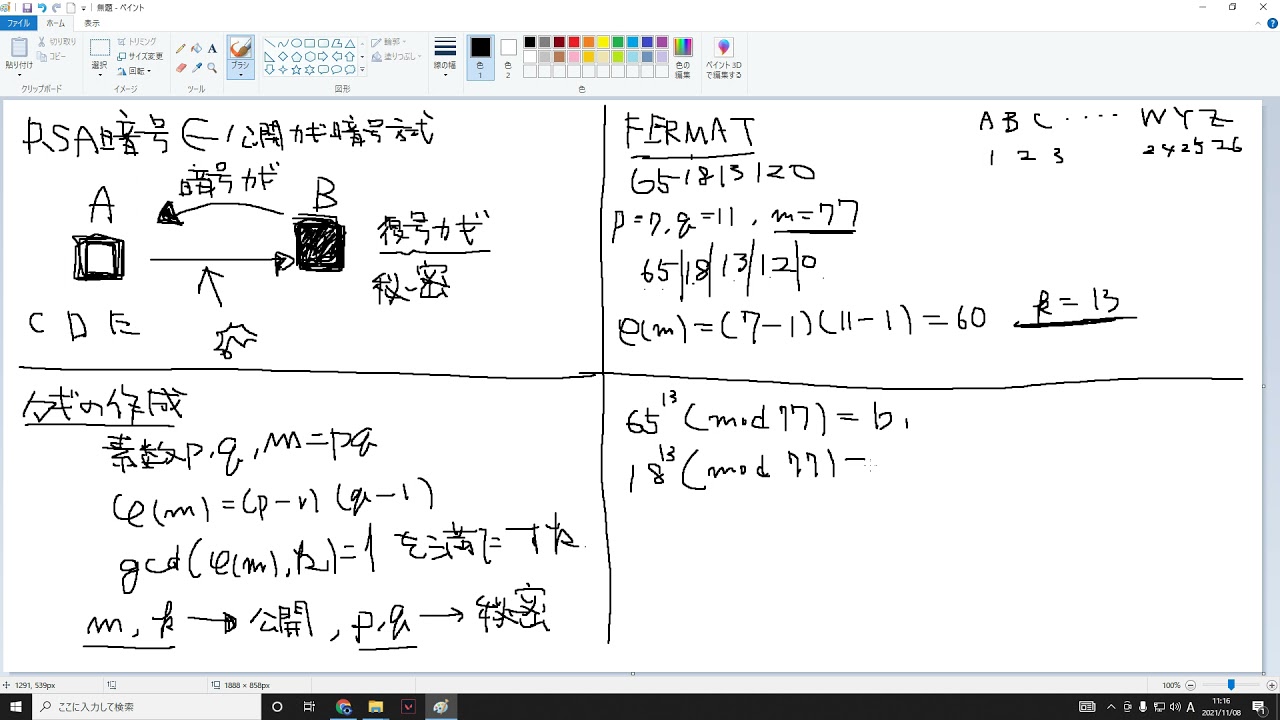 無題 - ペイント
ファイル ホーム 表示
貼り付け
切り取り
コピー
クリップボード
選択
トリミング
サイズ変更
回転
イメージ
ツール
ブラシ
輪郭
塗りつぶし
図形
線の幅
色 1
色 2
色の編集
色
ペイント 3D で編集する
RSA暗号∈公開カギ暗号方式
暗号カギ
A B
復号カギ
秘密
C D E
カギの作成
素数p,q, m=pq
φ(m)=(p-1)(q-1)
gcd(φ(m),k)=1 を満たす k
m, k → 公開, p,q → 秘密
FERMAT
A B C ‥‥ W Y Z
1 2 3 24 25 26
65 18 13 120
p=7, q=11, m=77
65|18|13|12|0
φ(m)=(7-1)(11-1)=60 k=13
65^13 (mod 77) = b1
18^13 (mod 77) =
1291, 539px
1888 × 858px
100%
ここに入力して検索
A
11:16
2021/11/08